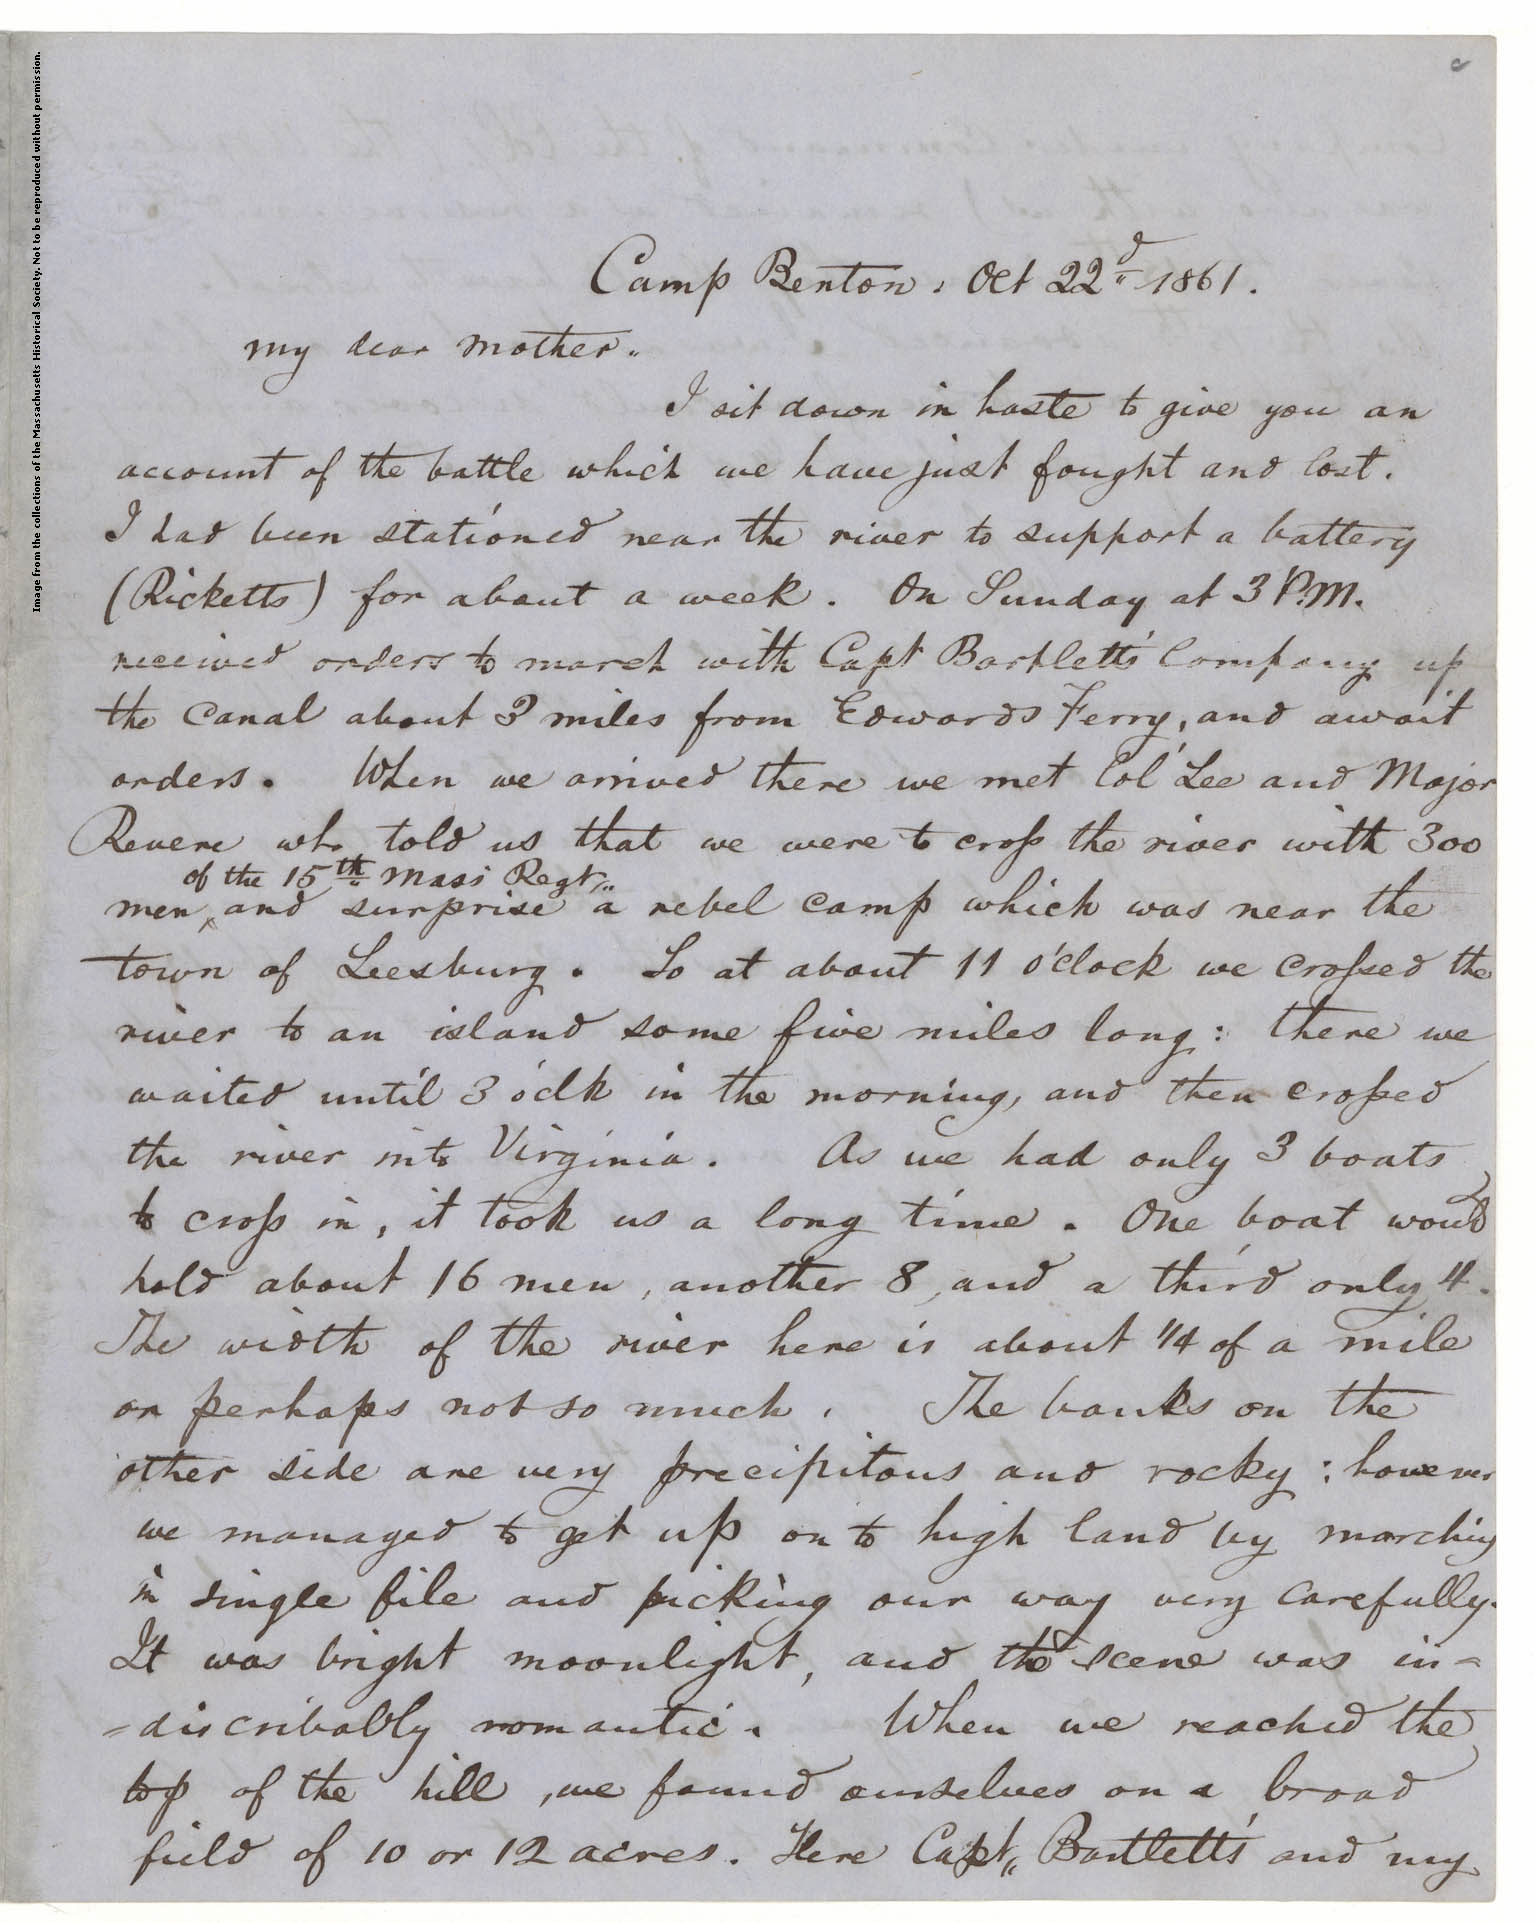 Image from the collections of the Massachusetts Historical Society. Not to be reproduced without permission.
Camp Benton, Oct 22d 1861.
My dear Mother.
I sit down in haste to give you an
account of the battle which we have just fought and lost.
I had been stationed near the river to support a battery
(Ricketts) for about a week. On Sunday at 3 P.M.
received orders to march with Capt Bartletts Company up
the canal about 3 miles from Edwards Ferry, and await
orders. When we arrived there we met Col Lee and Major
Revere who told us that we were to cross the river with 300
of the 15th Mass Regt.
men, and surprise a rebel camp which was near the
town of Leesburg. So at about 11 o'clock we crossed the
river to an island some five miles long: there we
waited until 3 o'clk in the morning, and then crossed
the river into Virginia. As we had only 3 boats
to cross in, it took us a long time. One boat would
hold about 16 men, another 8, and a third only 4.
The width of the river here is about 1/4 of a mile
or perhaps not so much. The banks on the
other side are very precipitous and rocky: however
we managed to get up on to high land by marching
in single file and picking our way very carefully.
It was bright moonlight, and the scene was in-
-discribably romantic. When we reached the
top of the hill, we found ourselves on a broad
field of 10 or 12 acres. Here Capt. Bartlett's and my